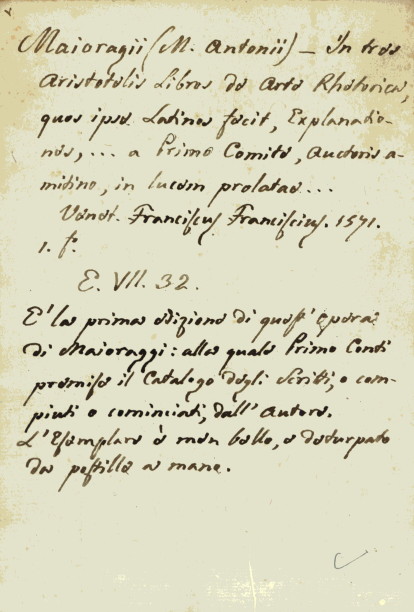 Maioragii (M. Antonii) — In tres
Aristotelis Libros de Arte Rhetorica,
quos ipse Latinos fecit, Explanatio-
nes, ... a Primo Comite, Auctoris a-
mitino, in lucem prolatae...
Venet. Franciscus Franciscius. 1571.
1. f.°
E. VII. 32.
E' la prima edizione di quest' opera
di Maioraggi: alla quale Primo Conti
premise il Catalogo degli Scritti, o com-
piuti o cominciati, dall' Autore.
L'Esemplare è men bello, e deturpato
da postille a mane.